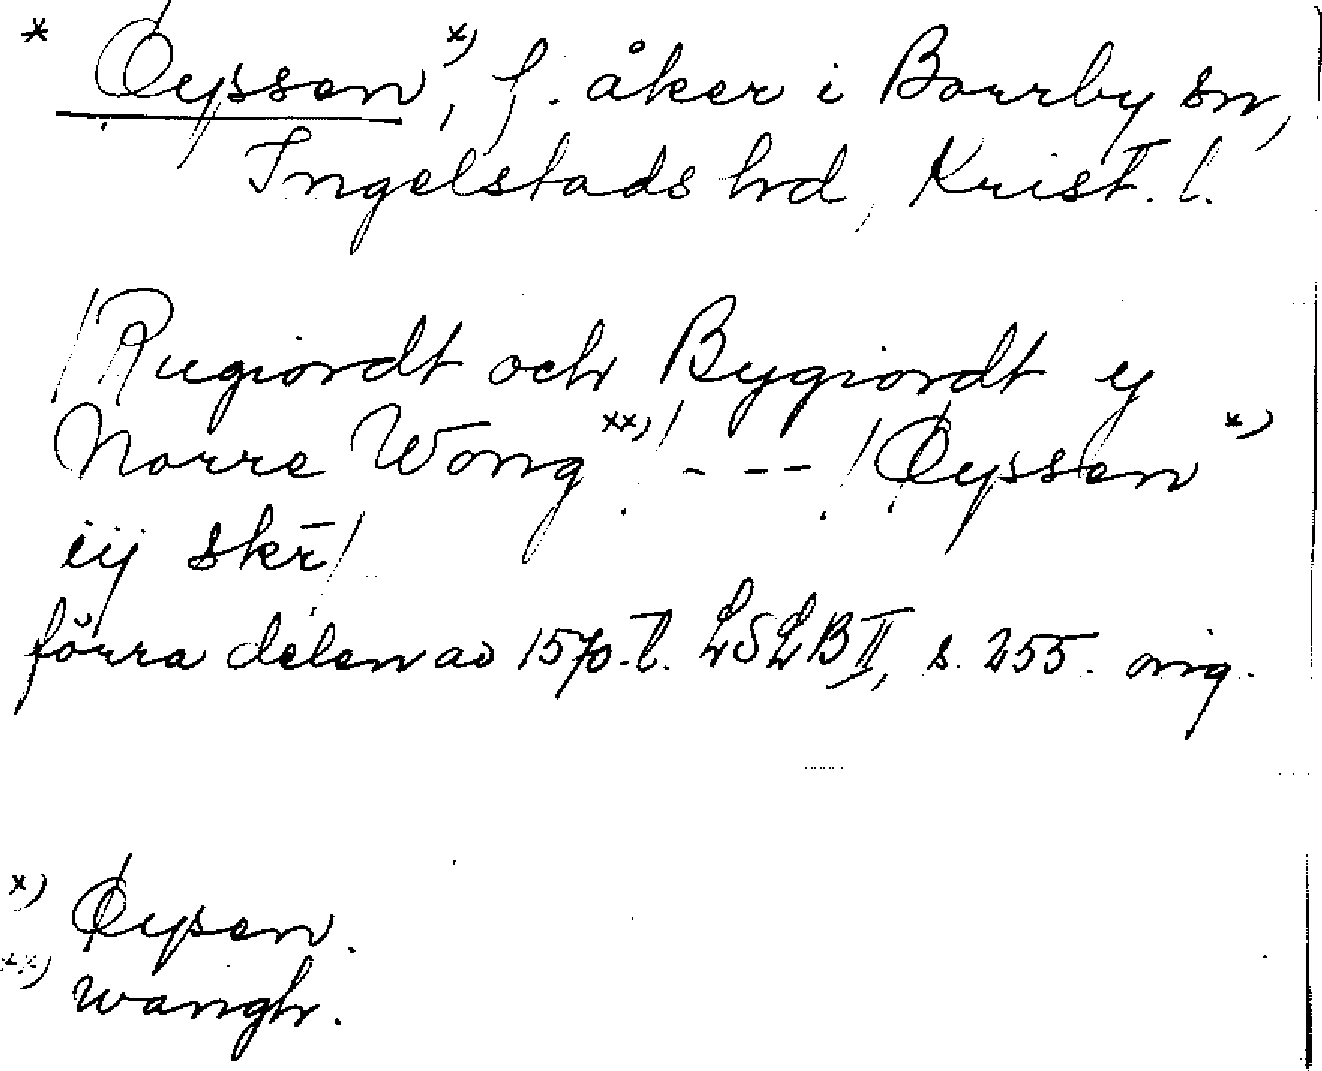 * Øypsen ˣ⁾, f. åker i Borrby sn,
Ingelstads hrd, Krist. l.
/Rugiordt och Bygiordt ij
Norre Wong ˣˣ⁾/ - - - /Øypsen ˣ⁾
iij skr̄/
förra delen av 1570-t. LSLB II, s. 255. orig.
x) Øypen.
xx) wangh.